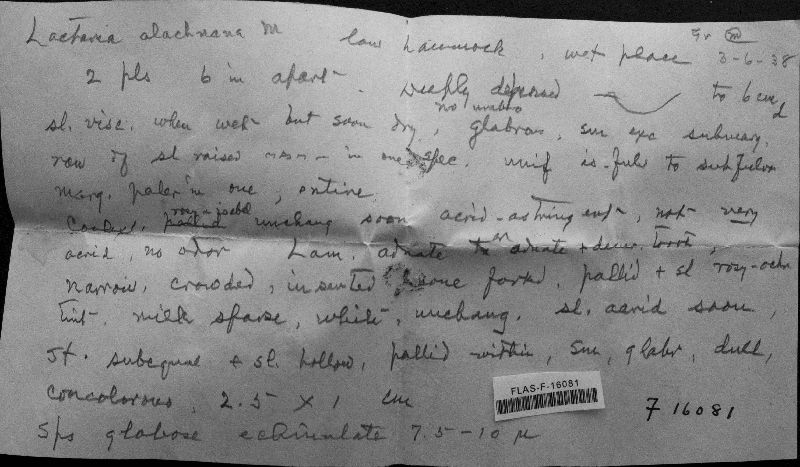 Lactaria alachuana M low hammock, wet place Gv M 3-6-38
2 pls 6 in apart. Deeply depressed to 6 cm d
sl. visc. when wet but soon dry, no umbo glabrous, sm exc subvary.
row of sl raised in one spec. unif is-fulv to subfulvo
marg. paler in one, entire
Context. pallid rosy-isabel unchang soon acrid-astringent, not very
acrid, no odor Lam. adnate to adnate + decur. tooth,
narrow, crowded, inserted some forked, pallid + sl rosy-ochr
tint. milk sparse, white, unchang. sl. acrid soon,
St. subequal + sl. hollow, pallid within, sm, glabr, dull,
concolorous, 2.5 x 1 cm
FLAS-F-16081
F 16081
Sps globose echinulate 7.5-10 µ